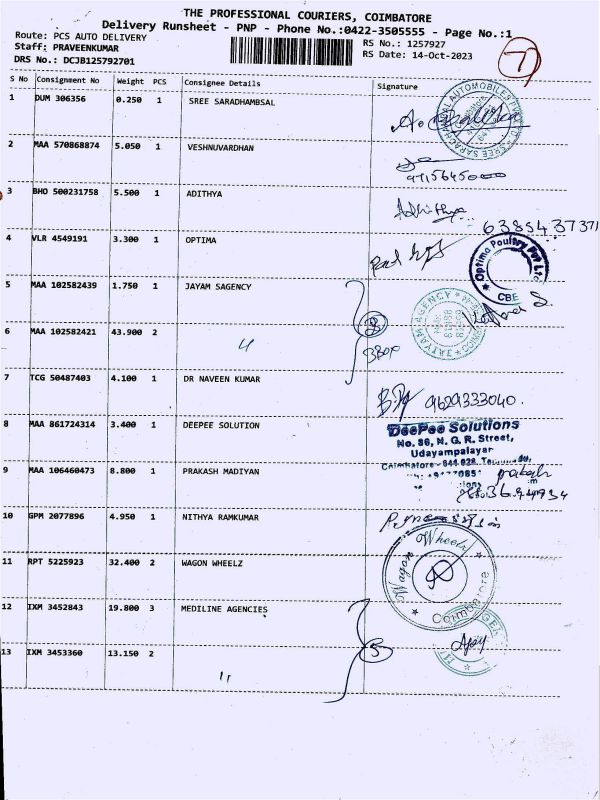 THE PROFESSIONAL COURIERS, COIMBATORE
Delivery Runsheet - PNP - Phone No.:0422-3505555 - Page No.:1
Route: PCS AUTO DELIVERY
Staff: PRAVEENKUMAR
DRS No.: DCJB125792701
RS No.: 1257927
RS Date: 14-Oct-2023
7
S No Consignment No Weight PCS Consignee Details Signature
1 DUM 306356 0.250 1 SREE SARADHAMBSAL
2 MAA 570868874 5.050 1 VESHNUVARDHAN
3 BHO 500231758 5.500 1 ADITHYA Adhithya
6385437371
4 VLR 4549191 3.300 1 OPTIMA
Optima Poultry Pvt Ltd
CBE
5 MAA 102582439 1.750 1 JAYAM SAGENCY
JAIYAM AGENCY
6 MAA 102582421 43.900 2 "
3 Box
7 TCG 50487403 4.100 1 DR NAVEEN KUMAR
9629333040.
8 MAA 861724314 3.400 1 DEEPEE SOLUTION
DeePee Solutions
No. 86, N. G. R. Street,
Udayampalayar
9 MAA 106460473 8.800 1 PRAKASH MADIYAN prakash
10 GPM 2077896 4.950 1 NITHYA RAMKUMAR
11 RPT 5225923 32.400 2 WAGON WHEELZ
Wagon Wheelz
Coimbatore
12 IXM 3452843 19.800 3 MEDILINE AGENCIES
5
Ajay
13 IXM 3453360 13.150 2 "